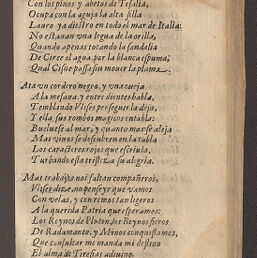 Con los pinos y abetos de Tesalia,
Ocupa con la aguja la alta silla
Lauro y a diestro en todo el mar de Italia:
No estauan vna legua de la orilla,
Quando apenas tocando la sandalia
De Circe el agua por la blanca espuma,
Qual Cisne passa sin mouer la pluma.
Ata vn cordero negro, y vna oueja
A la mesana, y entre dientes habla,
Temblando Vlises proseguir la dexa,
Y ella sus rombos magicos entabla:
Buelue se al mar, y quanto mas se aleja
Mas viuos se descubren en la tabla
Los caracteres rojos que escriuia,
Turbando esta tristeza su alegria.
Mas trabajos nos faltan compañeros,
Vlises dize, no penseys que vamos
Con velas, y con remos tan ligeros
A la querida Patria que esperamos:
Los Reynos de Pluton, los Reynos fieros
De Radamanto, y Minos conquistamos,
Que consultar me manda mi destino
El alma de Tiresias adiuino.